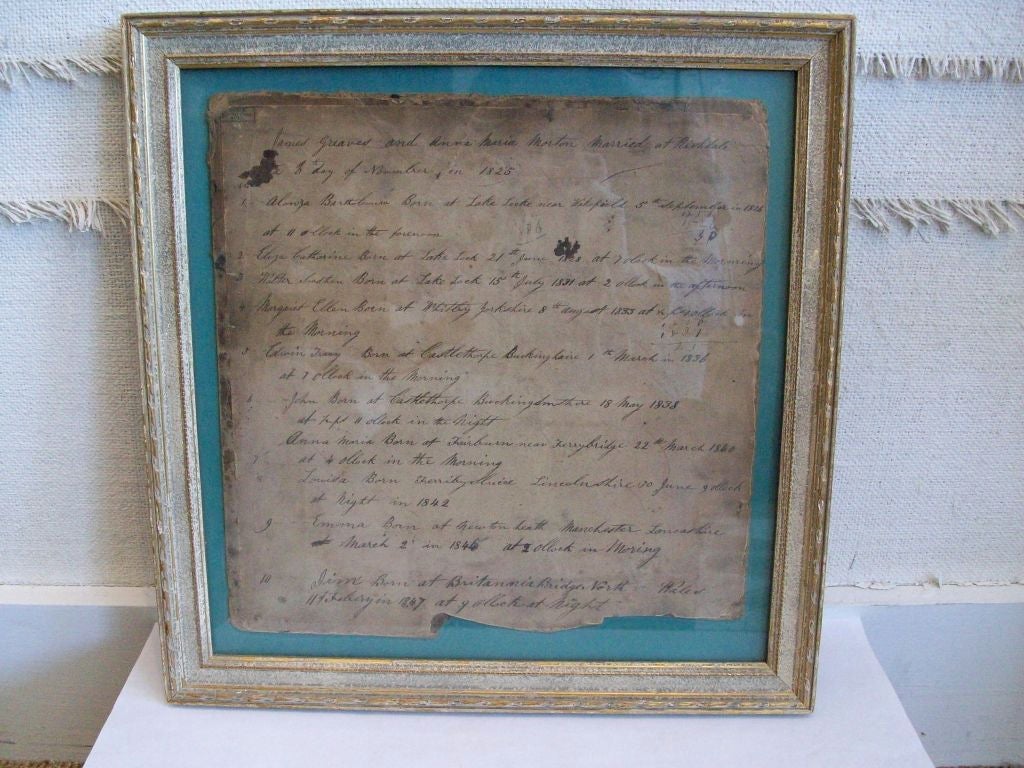 James Greaves and Anna Maria Morton Married at
8 day of November, in 1825
1 Born at Lake Locke near 5th September in 1826
at 11 oClock in the forenoon
2 Eliza Catharine Born at Lake Lock 21th June at 7 oClock in the Morning
3 Walter Born at Lake Lock 15th July 1831 at 2 oClock in the afternoon
4 Margaret Ellen Born at Whitby Yorkshire 8th august 1833 at oClock in
the Morning
5 Edwin Born at Castlethorpe 1th March in 1836
at 7 oClock in the Morning
6 John Born at Castlethorpe 18 May 1838
at 11 oClock in the Night
Anna Maria Born at Fairburn near Ferrybridge 22th March 1840
7 at 4 oClock in the Morning
8 Louisa Born Lincolnshire 30 June 9 oClock
at Night in 1842
9 Emma Born at Newton heath Manchester Lancashire
March 2 in 1846 at 2 oClock in Moring
10 Jim Born at Britannia Bridge North Wales
in 1847 at 9 oClock at Night